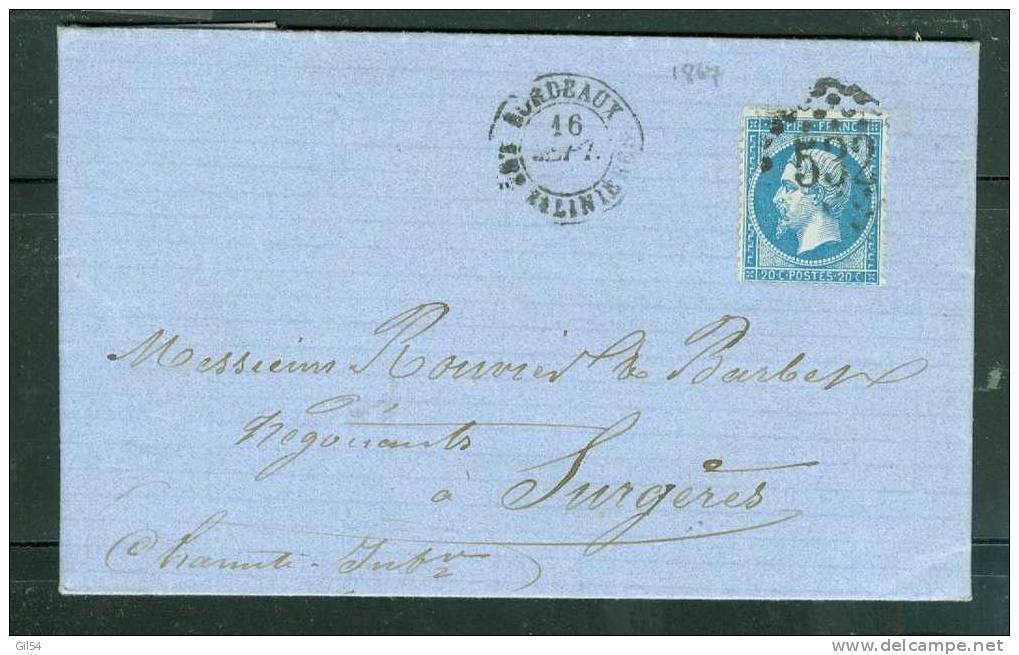 1867
BORDEAUX
16
SEPT.
EMPIRE FRANC
532
20 C POSTES 20 C
Messieurs Rouvier & Barbet
Négociants
à Surgères
Charente Infre
Gil54
www.delcampe.net